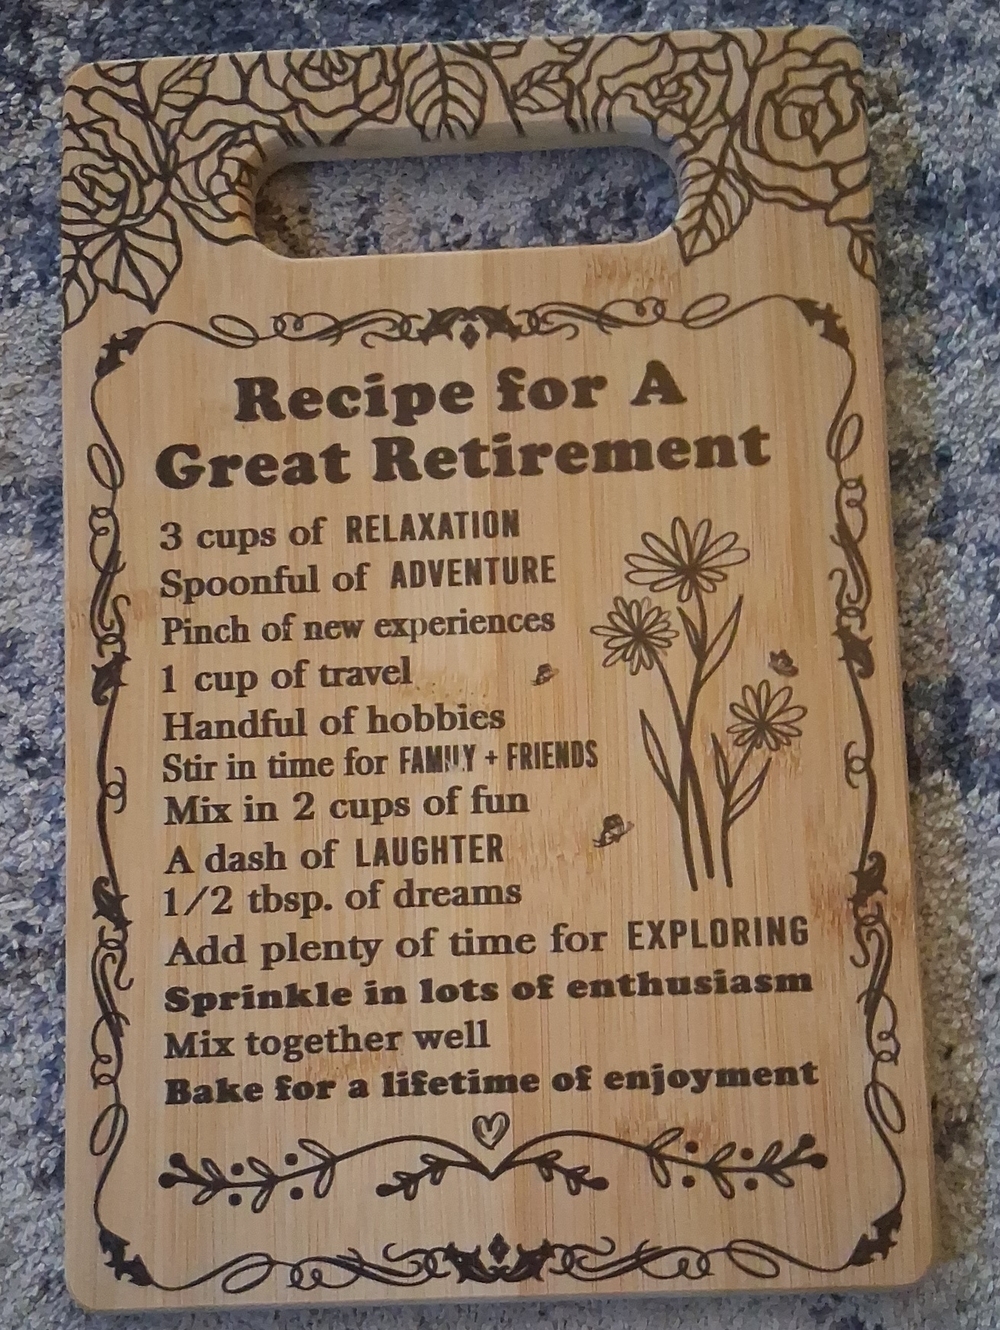 Recipe for A
Great Retirement
3 cups of RELAXATION
Spoonful of ADVENTURE
Pinch of new experiences
1 cup of travel
Handful of hobbies
Stir in time for FAMILY + FRIENDS
Mix in 2 cups of fun
A dash of LAUGHTER
1/2 tbsp. of dreams
Add plenty of time for EXPLORING
Sprinkle in lots of enthusiasm
Mix together well
Bake for a lifetime of enjoyment